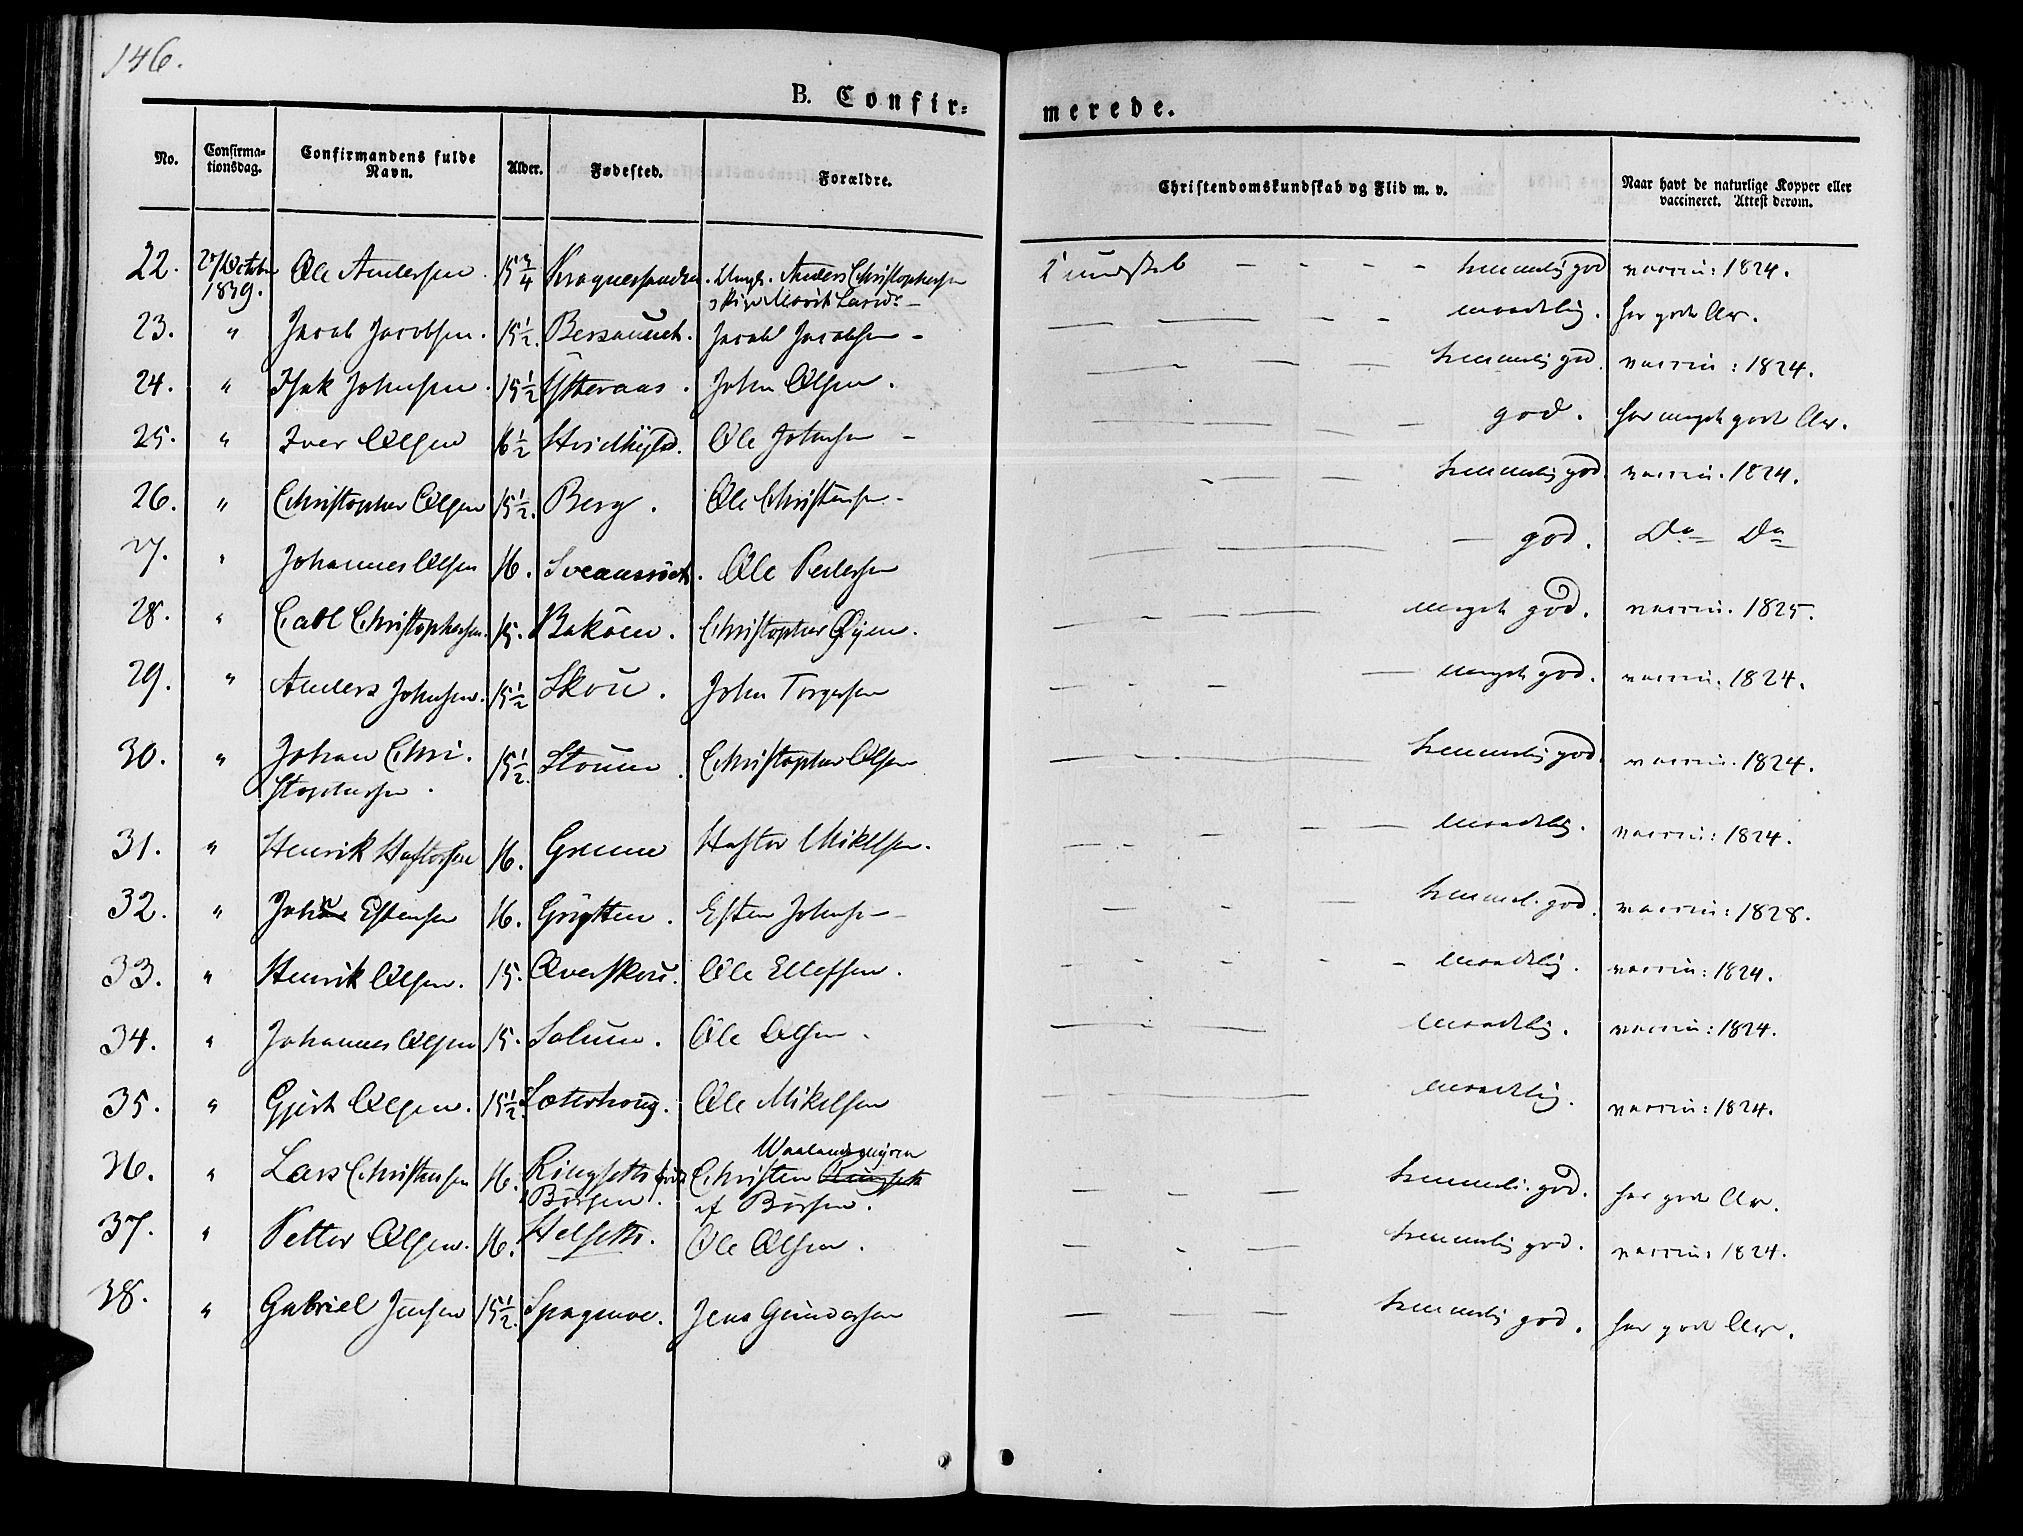 146.
B. Confir=
merede.
No. Confirma-tionsdag. Confirmandens fulde Navn. Alder. Fødested. Forældre. Christendomskundskab og Flid m. v. Naar havt de naturlige Kopper eller vaccineret. Attest derom.
22. 27 October 1839. Ole Andersen. 15 3/4 Ungk. Anders Christophersen Kundskab - - - - temmelig god vaccin: 1824.
Pige Marit Larsd. -
23. " Jacob Jacobsen. 15 1/2. Jacob Jacobsen - maadelig. har gode Ar.
24. " Isak Johnsen. 15 1/2 Ysteraas. John Olsen. temmelig god. vaccin: 1824.
25. " Iver Olsen 16 1/2 Ole Johnsen - god. har meget gode Ar.
26. " Christopher Olsen 15 1/2. Berg. Ole Christensen - temmelig god vaccin. 1824.
27. " Johannes Olsen 16. Ole Pedersen - god. Do Do
28. " Carl Christophersen. 15. Bakøen. Christopher Øyen. meget god. vaccin. 1825.
29. " Anders Johnsen. 15 1/2 Skou. John Torgersen meget god. vaccin: 1824.
30. " Johan Chri- 15 1/2. Stouen. Christopher Olsen temmelig god. vaccin. 1824.
stophersen.
31. " Henrik Haftorsen 16. Grenne Haftor Mikelsen. maadelig. vaccin: 1824.
32. " John Estensen 16. Grytten. Esten Johnsen - temmel. god. vaccin: 1828.
33. " Henrik Olsen. 15. Overskou. Ole Ellefsen. maadelig. vaccin: 1824.
34. " Johannes Olsen 15. Solum. Ole Olsen. maadelig. vaccin: 1824.
35. " Gjert Olsen. 15 1/2. Sæterhoug. Ole Mikelsen maadelig. vaccin: 1824.
Waalandsmyren
36. " Lars Christensen 16. Ringseth Christen Ringseth temmeli. god. har gode Ar.
Børsen. af Børsen.
37. " Petter Olsen. 16. Helseth. Ole Olsen. temmelig god. vaccin: 1824.
38. " Gabriel Jensen 15 1/2. Jens Gundersen temmelig god. har gode Ar.